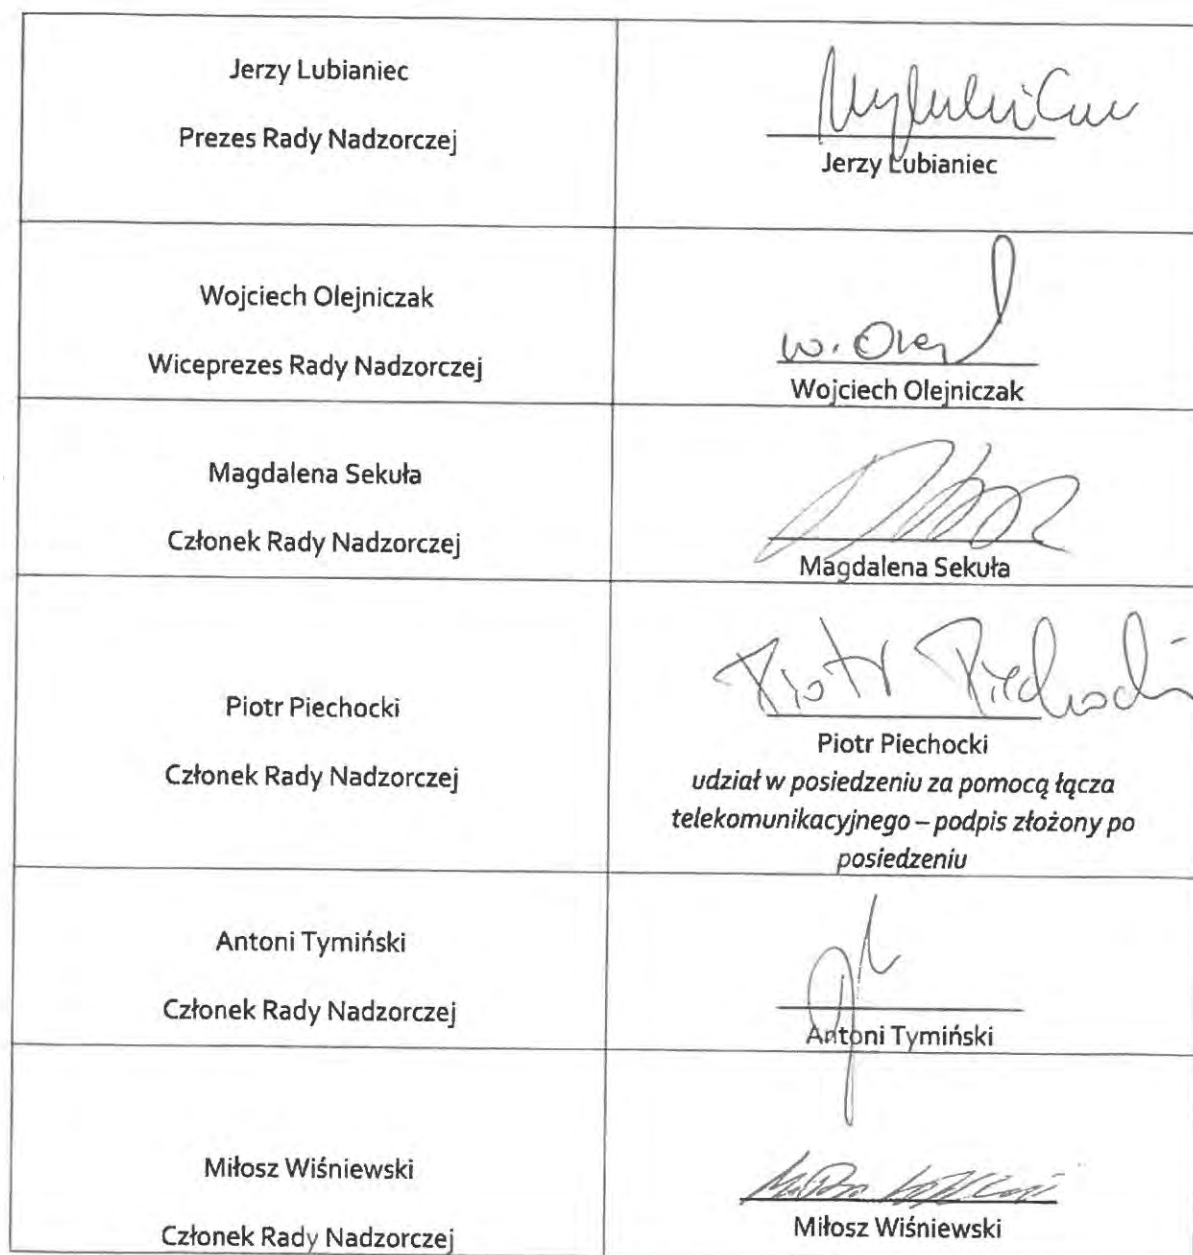 Jerzy Lubianiec
Prezes Rady Nadzorczej
Jerzy Lubianiec
Wojciech Olejniczak
Wiceprezes Rady Nadzorczej
w. Olej
Wojciech Olejniczak
Magdalena Sekuła
Członek Rady Nadzorczej
Magdalena Sekuła
Piotr Piechocki
Członek Rady Nadzorczej
Piotr Piechocki
Piotr Piechocki
udział w posiedzeniu za pomocą łącza
telekomunikacyjnego – podpis złożony po
posiedzeniu
Antoni Tymiński
Członek Rady Nadzorczej
Antoni Tymiński
Miłosz Wiśniewski
Członek Rady Nadzorczej
Miłosz Wiśniewski